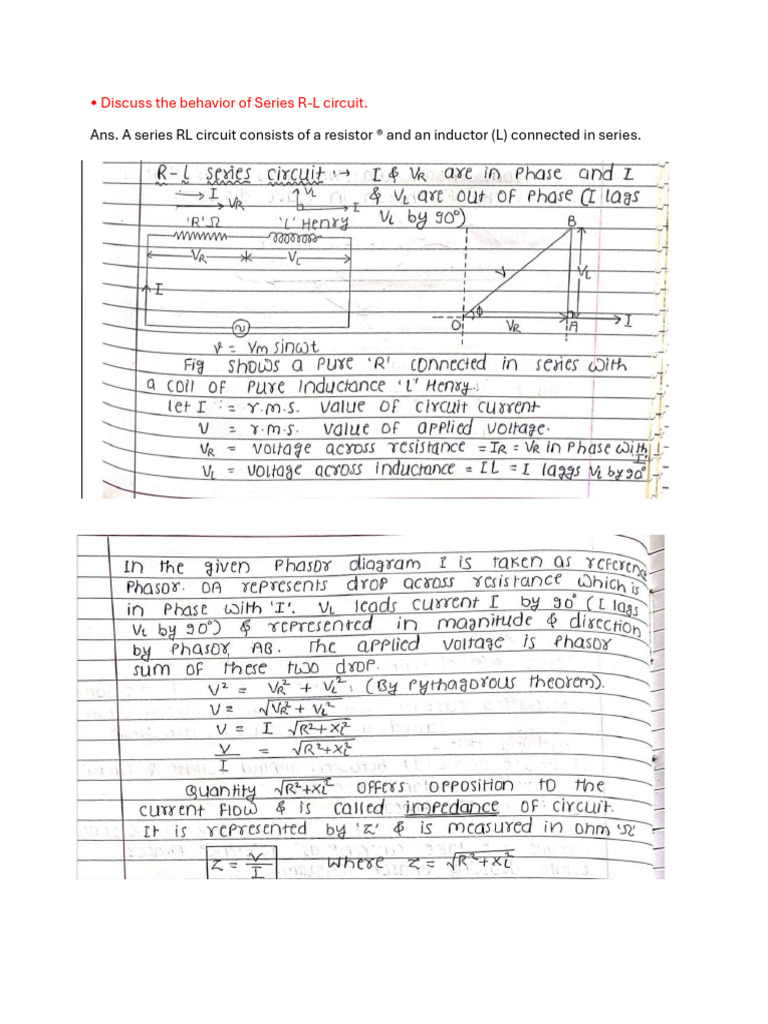 • Discuss the behavior of Series R-L circuit.
Ans. A series RL circuit consists of a resistor ® and an inductor (L) connected in series.
R-L series circuit :→ I & VR are in Phase and I
& VL are out of Phase (I lags
VL by 90°)
I
VR
VL
I
'R'Ω
'L' Henry
VR
VL
I
v = Vm sinωt
B
V
VL
O
ϕ
VR
A
I
Fig shows a Pure 'R' connected in series with
a coil of Pure inductance 'L' Henry.
let I = r.m.s. value of circuit current
V = r.m.s. value of applied voltage.
VR = voltage across resistance = IR = VR in Phase with I
VL = voltage across inductance = IL = I laggs VL by 90°
In the given Phasor diagram I is taken as referenc
Phasor. OA represents drop across resistance which is
in Phase with 'I'. VL leads current I by 90° (I lags
VL by 90°) & represented in magnitude & direction
by Phasor AB. The applied voltage is Phasor
sum of these two drop.
V² = VR² + VL², (By Pythagorous theorem).
V = √VR² + VL²
V = I √R²+XL²
V/I = √R²+XL²
Quantity √R²+XL² offers opposition to the
current flow & is called impedance of circuit.
It is represented by 'Z' & is measured in ohm 'Ω'
Z = V/I where Z = √R²+XL²